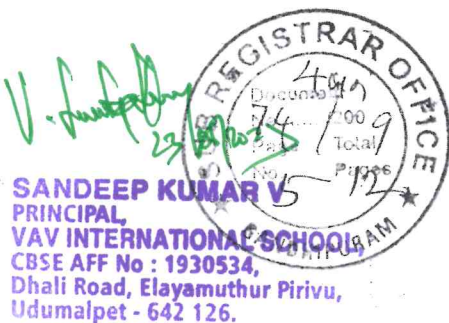 SUB REGISTRAR OFFICE
Document
No. 74 / 2009
Page Total
No. 5 Pages 12
GANDHIPURAM
V. Sandeep Kumar
SANDEEP KUMAR V
PRINCIPAL,
VAV INTERNATIONAL SCHOOL,
CBSE AFF No : 1930534,
Dhali Road, Elayamuthur Pirivu,
Udumalpet - 642 126.